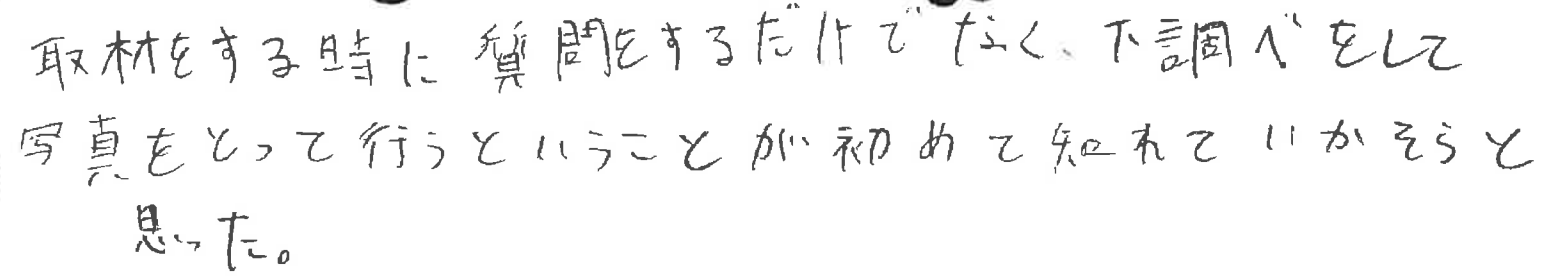 取材をする時に質問をするだけでなく、下調べをして
写真をとって行うということが初めて知れていかそうと
思った。